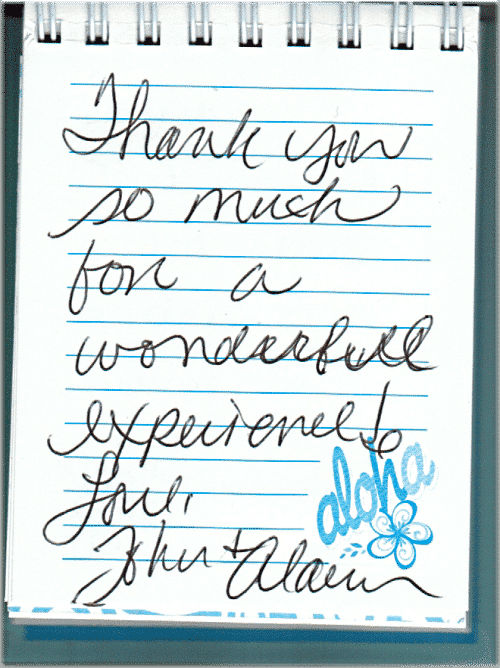 Thank you
so much
for a
wonderfull
experience!
Love,
aloha
John +